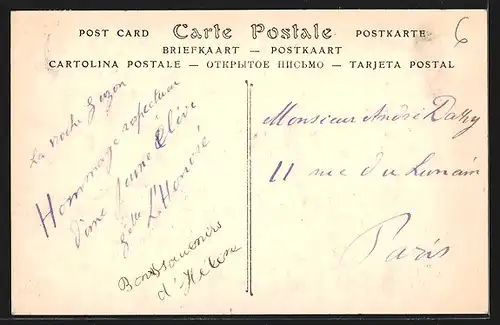 POST CARD Carte Postale POSTKARTE
BRIEFKAART — POSTKAART
CARTOLINA POSTALE — ОТКРЫТОЕ ПИСЬМО — TARJETA POSTAL
6
La Roche Guyon
Hommage respectueux
d'une jeune élève
L'Honoré
Bons souvenirs
d'Hélène
Monsieur André Dassy
11 rue du Lunain
Paris